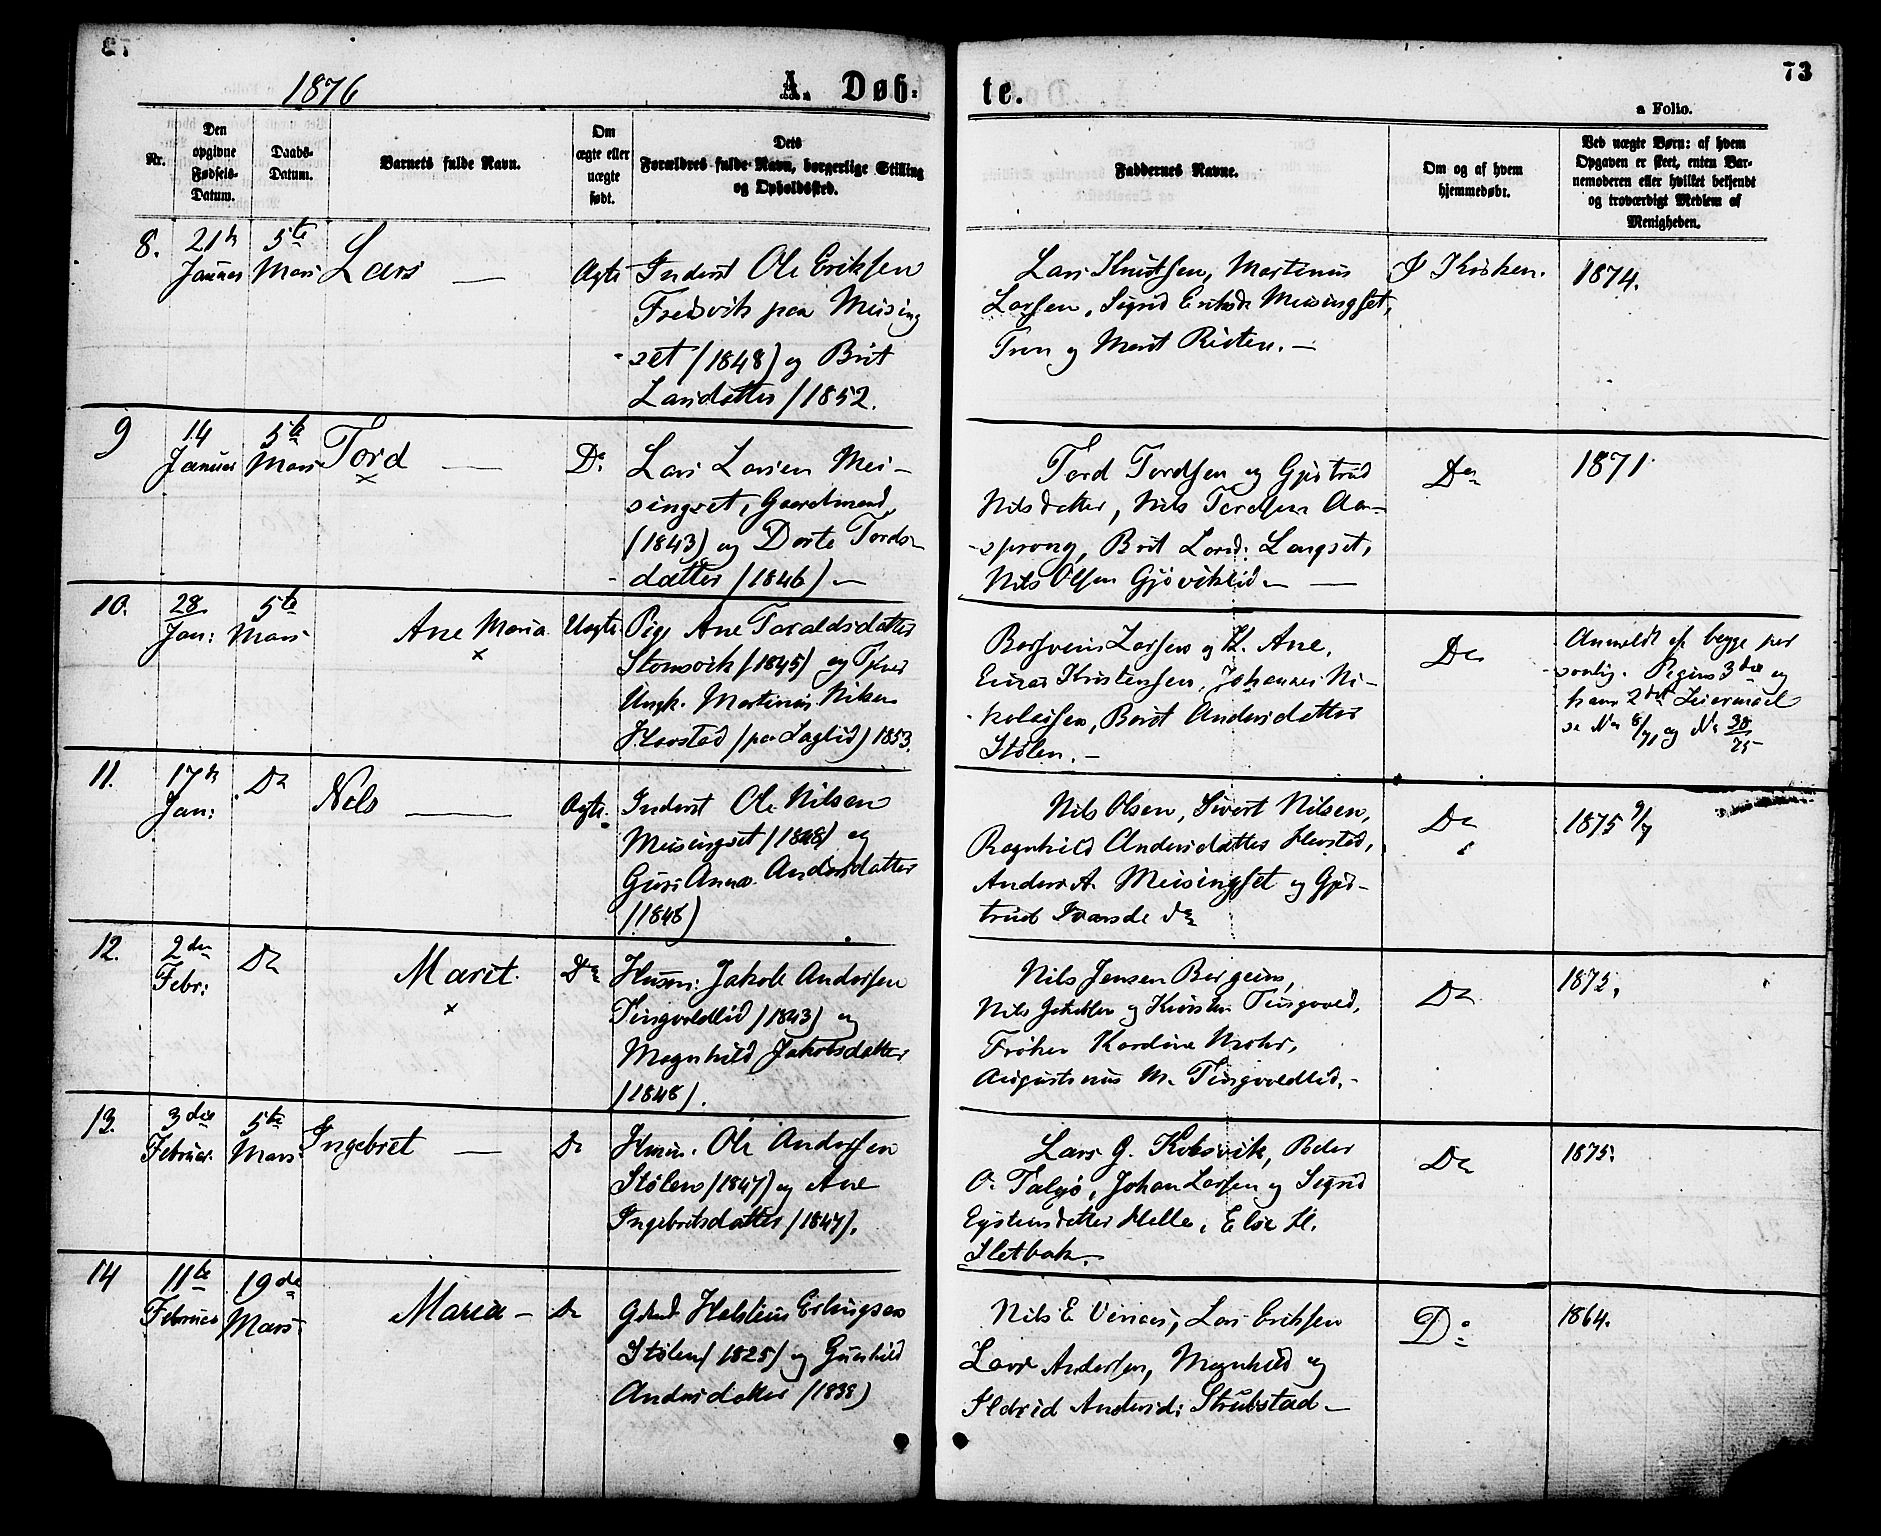 73
1876 A. Døb- te.
a Folio.
Nr.
Den opgivne Fødsels-Datum.
Daabs-Datum.
Barnets fulde Navn.
Om ægte eller uægte født.
Dets Forældres fulde Navn, borgerlige Stilling og Opholdssted.
Faddernes Navne.
Om og af hvem hjemmedøbt.
Ved uægte Børn: af hvem Opgaven er skeet, enten Barnemoderen eller hvilket bekjendt og troværdigt Medlem af Menigheden.
8. 21de Januar 5te Mars Lars — Ægte
Inderst Ole Eriksen
Fredsvik paa Meising
-set (1848) og Brit
Larsdatter (1852.
Lars Knutsen, Martinus
Larsen, Sigrid Eriksd. Meisingset,
og Marit —
I Kirken.
1874.
9 14 Januar 5te Mars Tord — Do
x
Lars Larsen Mei-
singset, Gaardmand
(1843) og Dorte Tords-
datter (1846) —
Tord Tordsen og Gjertrud
Nilsdatter, Nils Tordsen Aa-
-sprong, Brit Larsd. Langset,
Nils Olsen Gjøviklid — —
Do
1871
10. 28 Jan: 5te Mars Ane Maria Uægte
x
Pige Ane Toraldsdatter
(1845) og
Ungk. Martinus Nilsen
Havstad (paa Daglid) 1853.
Larsen og K. Ane,
Einar Kristensen, Johannes Ni-
-kolaisen, Berit Andersdatter
Stølen. —
Do
Anmeldt af begge per
sonlig. Pigens 3die og
hans 2det Leiermaal
se No 8/71 og No 38/75
11. 17de Jan: Do Nils — Ægte.
Inderst Ole Nilsen
Meisingset (1848) og
Guri Anna Andersdatter
(1848)
Nils Olsen, Sivert Nilsen,
Ragnhild Andersdatter Havstad,
Anders A. Meisingset og Gjer-
trud Ivarsd. do
Do
1875 9/7
12. 2den Febr: Do Marit. Do
x
Husm: Jakob Andersen
Tingvoldlid (1843) og
Magnhild Jakobsdatter
(1848).
Nils Jensen Bergeim,
Nils Jakobsen og Kirsten Tingvold,
Frøken Kardine Mohr,
Augustinus M. Tingvoldlid. —
Do
1873.
13. 3die Februar 5te Mars Ingebret — Do
Husm. Ole Andersen
Stølen (1847) og Ane
Ingebretsdatter (1847).
Lars G. Kobsvik, Peder
O. Talgø, Johan Larsen og Sigrid
Eystensdatter Helle, Elise H.
Sletbak.
Do
1875.
14 11te Februar 19de Mars Maria — Do
Gdmd. Halstein Erlingsen
Stølen (1825) og Gunhild
Andersdatter (1838)
Nils E. , Lars Eriksen
Andersen, Magnhild og
Ildrid Andersd: Strubstad —
Do
1864.